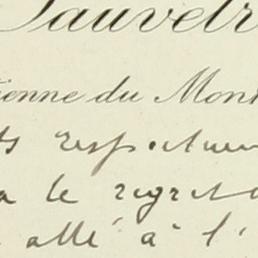 Sauvetr
ienne du Mont
ts respectueu
a le regret
allé à l'